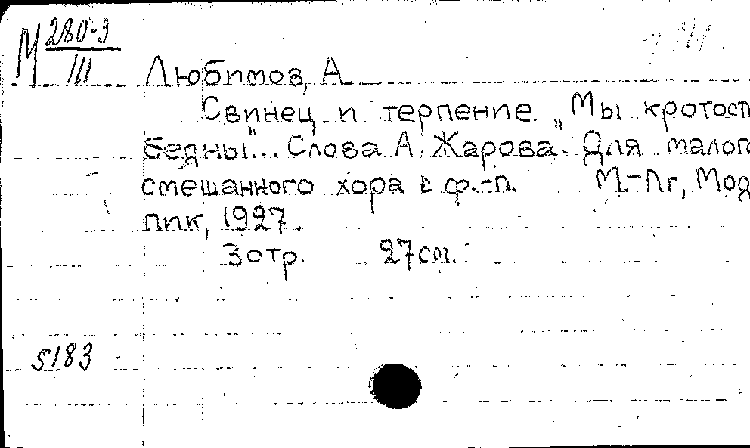 М 280-3
III
Любимов, А
Свинец и терпение „Мы кротост
бедны"... Слова А. Жарова. Для малог
смешанного хора с ф.-п. М.-Лг, Мод
пик, 1927.
3 стр. 27 см.
5183